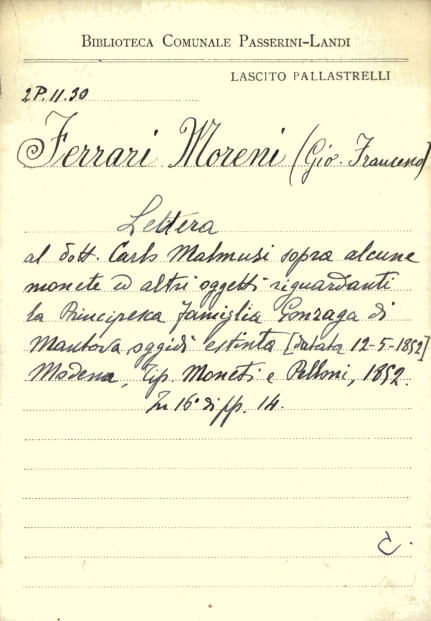 BIBLIOTECA COMUNALE PASSERINI-LANDI
LASCITO PALLASTRELLI
2P.11.30
Ferrari Moreni (Gio. Francesco)
Lettera
al dott. Carlo Malmusi sopra alcune
monete ed altri oggetti riguardanti
la Principesca famiglia Gonzaga di
Mantova oggidì estinta [datata 12-5-1852]
Modena, tip. Moneti e Pelloni, 1852.
In 16° di pp. 14.
C.